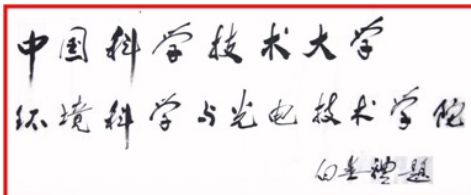 中国科学技术大学
环境科学与光电技术学院
白春礼题